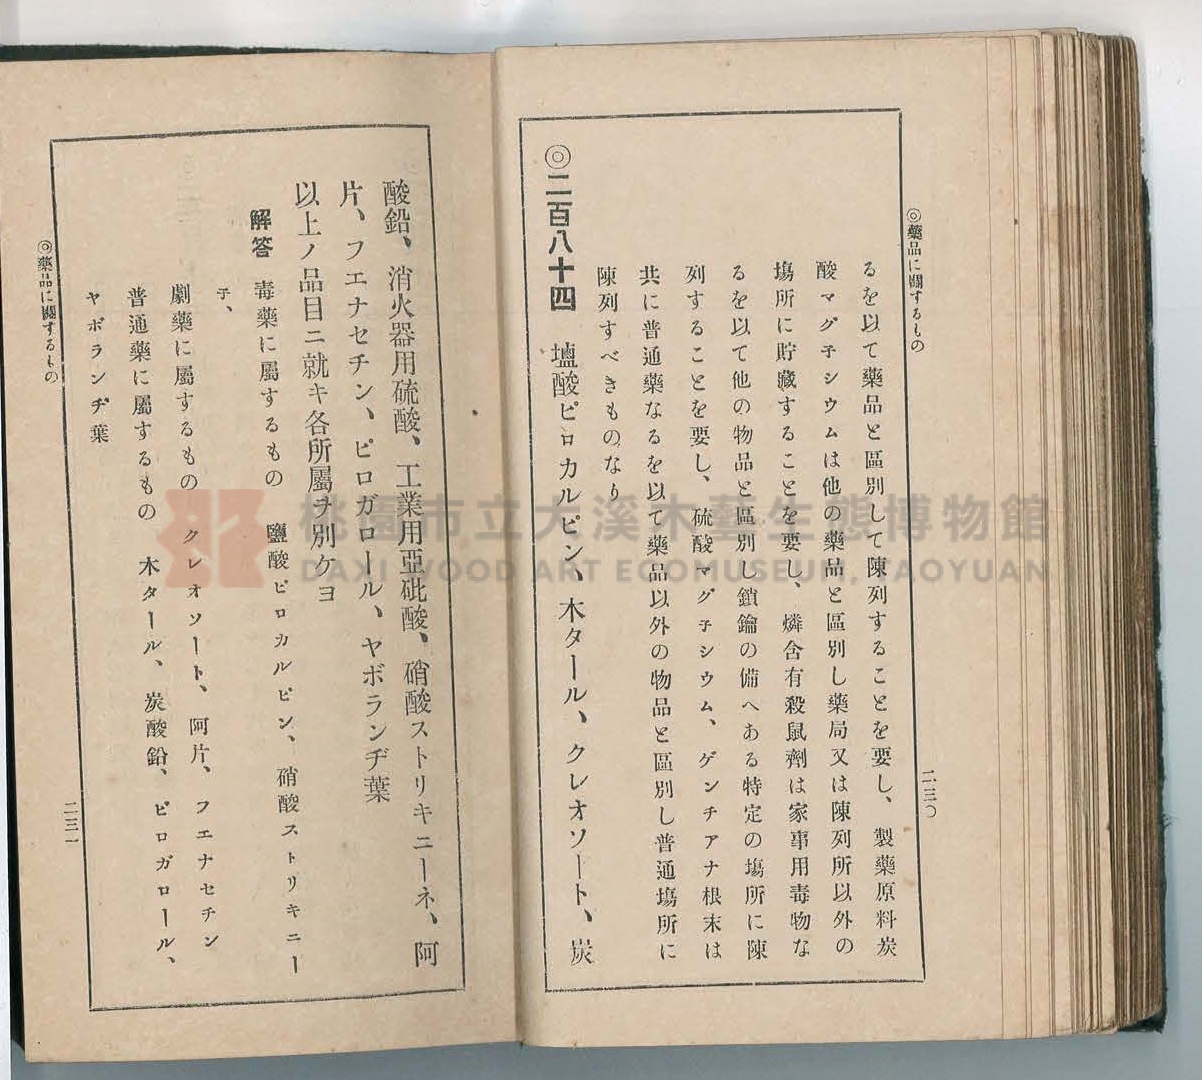 ◎藥品に關するもの
二三〇
るを以て藥品と區別して陳列することを要し、製藥原料炭
酸マグ子シウムは他の藥品と區別し藥局又は陳列所以外の
塲所に貯藏することを要し、燐含有殺鼠劑は家事用毒物な
るを以て他の物品と區別し鎖鑰の備へある特定の塲所に陳
列することを要し、硫酸マグ子シウム、ゲンチアナ根末は
共に普通藥なるを以て藥品以外の物品と區別し普通塲所に
陳列すべきものなり
◎二百八十四 壚酸ピロカルピン、木タール、クレオソート、炭
酸鉛、消火器用硫酸、工業用亞砒酸、硝酸ストリキニーネ、阿
片、フエナセチン、ピロガロール、ヤボランヂ葉
以上ノ品目ニ就キ各所屬ヲ別ケヨ
解答 毒藥に屬するもの 鹽酸ピロカルピン、硝酸ストリキニー
子、
劇藥に屬するもの クレオソート、阿片、フエナセチン
普通藥に屬するもの 木タール、炭酸鉛、ピロガロール、
ヤボランヂ葉
◎藥品に關するもの
二三一
桃園市立大溪木藝生態博物館
DAXI WOOD ART ECOMUSEUM, TAOYUAN